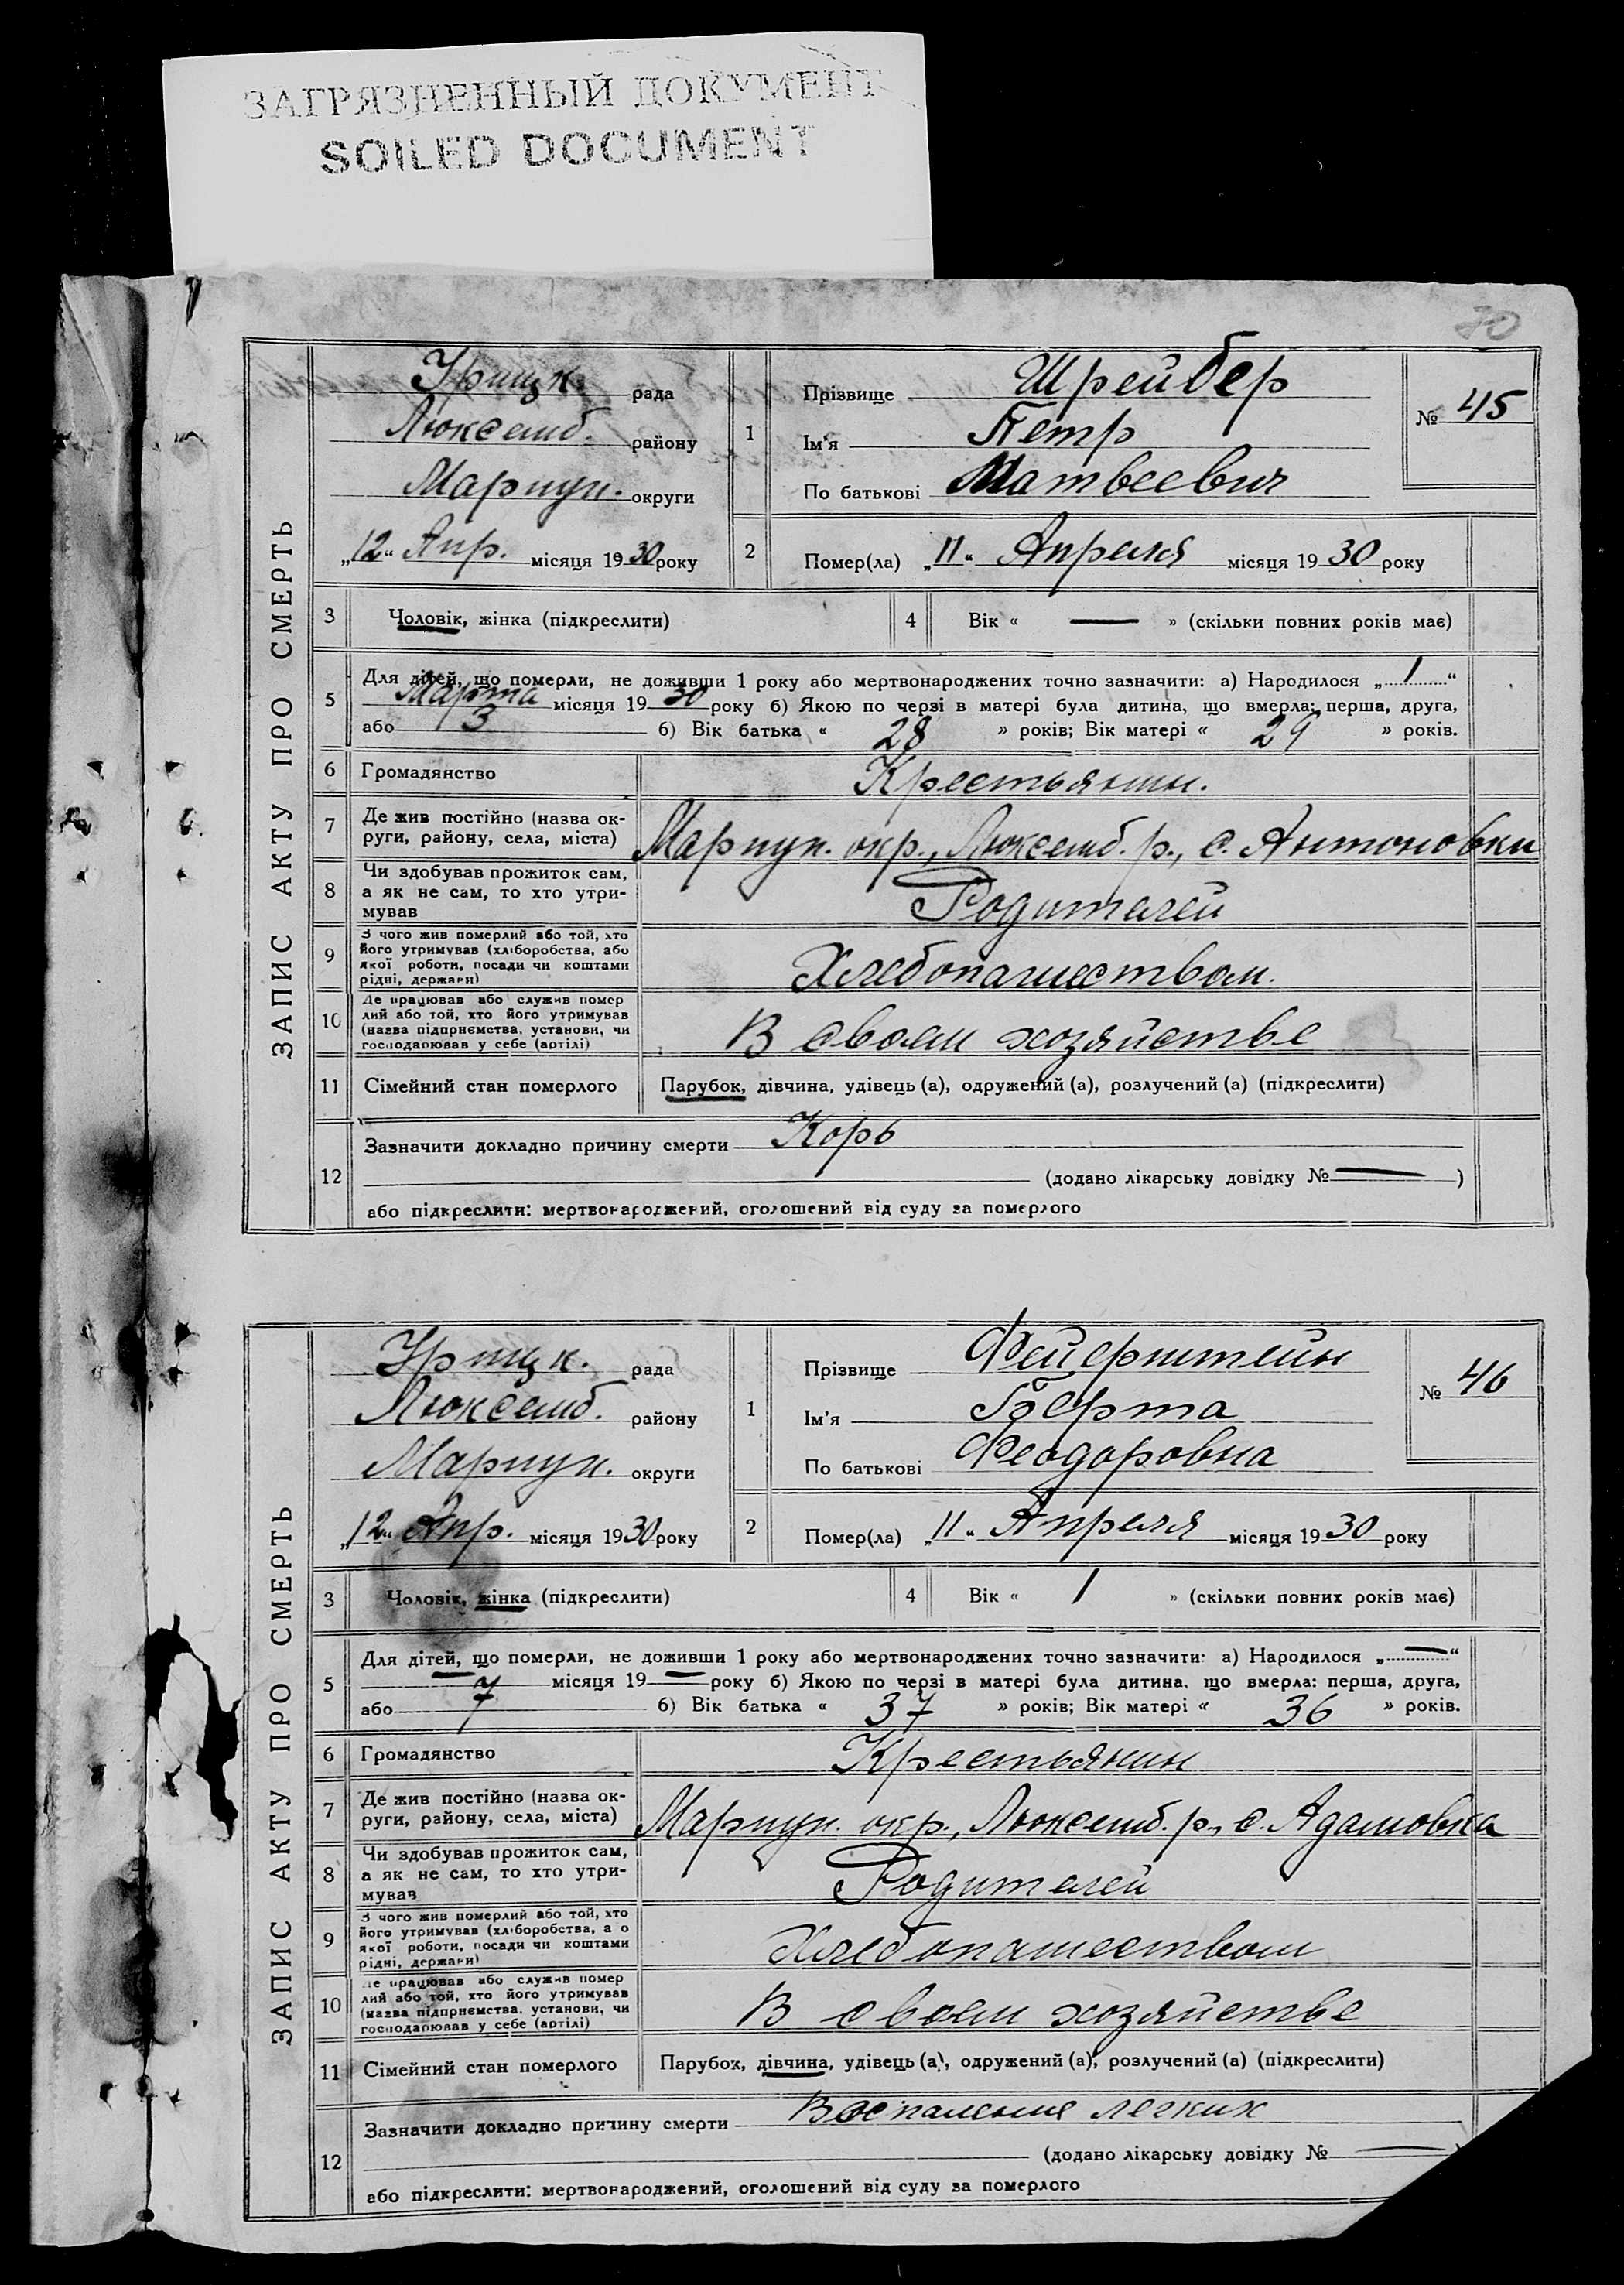 ЗАГРЯЗНЕННЫЙ ДОКУМЕНТ
SOILED DOCUMENT
70
ЗАПИС АКТУ ПРО СМЕРТЬ
Урицк. рада
Люксемб. району
Мариуп. округи
„12“ Апр. місяця 1930 року
1
Прізвище Шрейбер
Ім'я Петр
По батькові Матвеевич
№ 45
2 Помер(ла) „11“ Апреля місяця 1930 року
3 Чоловік, жінка (підкреслити)
4 Вік « — » (скільки повних років має)
5 Для дітей, що померли, не доживши 1 року або мертвонароджених точно зазначити: а) Народилося „1“
Марта місяця 1930 року б) Якою по черзі в матері була дитина, що вмерла: перша, друга,
або 3 б) Вік батька « 28 » років; Вік матері « 29 » років.
6 Громадянство Крестьянин.
7 Де жив постійно (назва ок-
руги, району, села, міста) Мариуп. окр., Люксемб. р., с. Антоновки
8 Чи здобував прожиток сам,
а як не сам, то хто утри-
мував Родителей
9 З чого жив померлий або той, хто
його утримував (хліборобства, або
якої роботи, посади чи коштами
рідні, держави) Хлебопашеством.
10 Де працював або служив помер
лий або той, хто його утримував
(назва підприємства, установи, чи
господарював у себе (артілі) В своем хозяйстве
11 Сімейний стан померлого Парубок, дівчина, удівець (а), одружений (а), розлучений (а) (підкреслити)
12 Зазначити докладно причину смерти Корь
(додано лікарську довідку № — )
або підкреслити: мертвонароджений, оголошений від суду за померлого
ЗАПИС АКТУ ПРО СМЕРТЬ
Урицк. рада
Люксемб. району
Мариуп. округи
„12“ Апр. місяця 1930 року
1
Прізвище Фейерштейн
Ім'я Берта
По батькові Феодоровна
№ 46
2 Помер(ла) „11“ Апреля місяця 1930 року
3 Чоловік, жінка (підкреслити)
4 Вік « 1 » (скільки повних років має)
5 Для дітей, що померли, не доживши 1 року або мертвонароджених точно зазначити: а) Народилося „—“
— місяця 19— року б) Якою по черзі в матері була дитина, що вмерла: перша, друга,
або 7 б) Вік батька « 37 » років; Вік матері « 36 » років.
6 Громадянство Крестьянин
7 Де жив постійно (назва ок-
руги, району, села, міста) Мариуп. окр., Люксемб. р., с. Адамовка
8 Чи здобував прожиток сам,
а як не сам, то хто утри-
мував Родителей
9 З чого жив померлий або той, хто
його утримував (хліборобства, а о
якої роботи, посади чи коштами
рідні, держави) Хлебопашеством
10 Де працював або служив помер
лий або той, хто його утримував
(назва підприємства, установи, чи
господарював у себе (артілі) В своем хозяйстве
11 Сімейний стан померлого Парубок, дівчина, удівець (а), одружений (а), розлучений (а) (підкреслити)
12 Зазначити докладно причину смерти Воспаление легких
(додано лікарську довідку № — )
або підкреслити: мертвонароджений, оголошений від суду за померлого